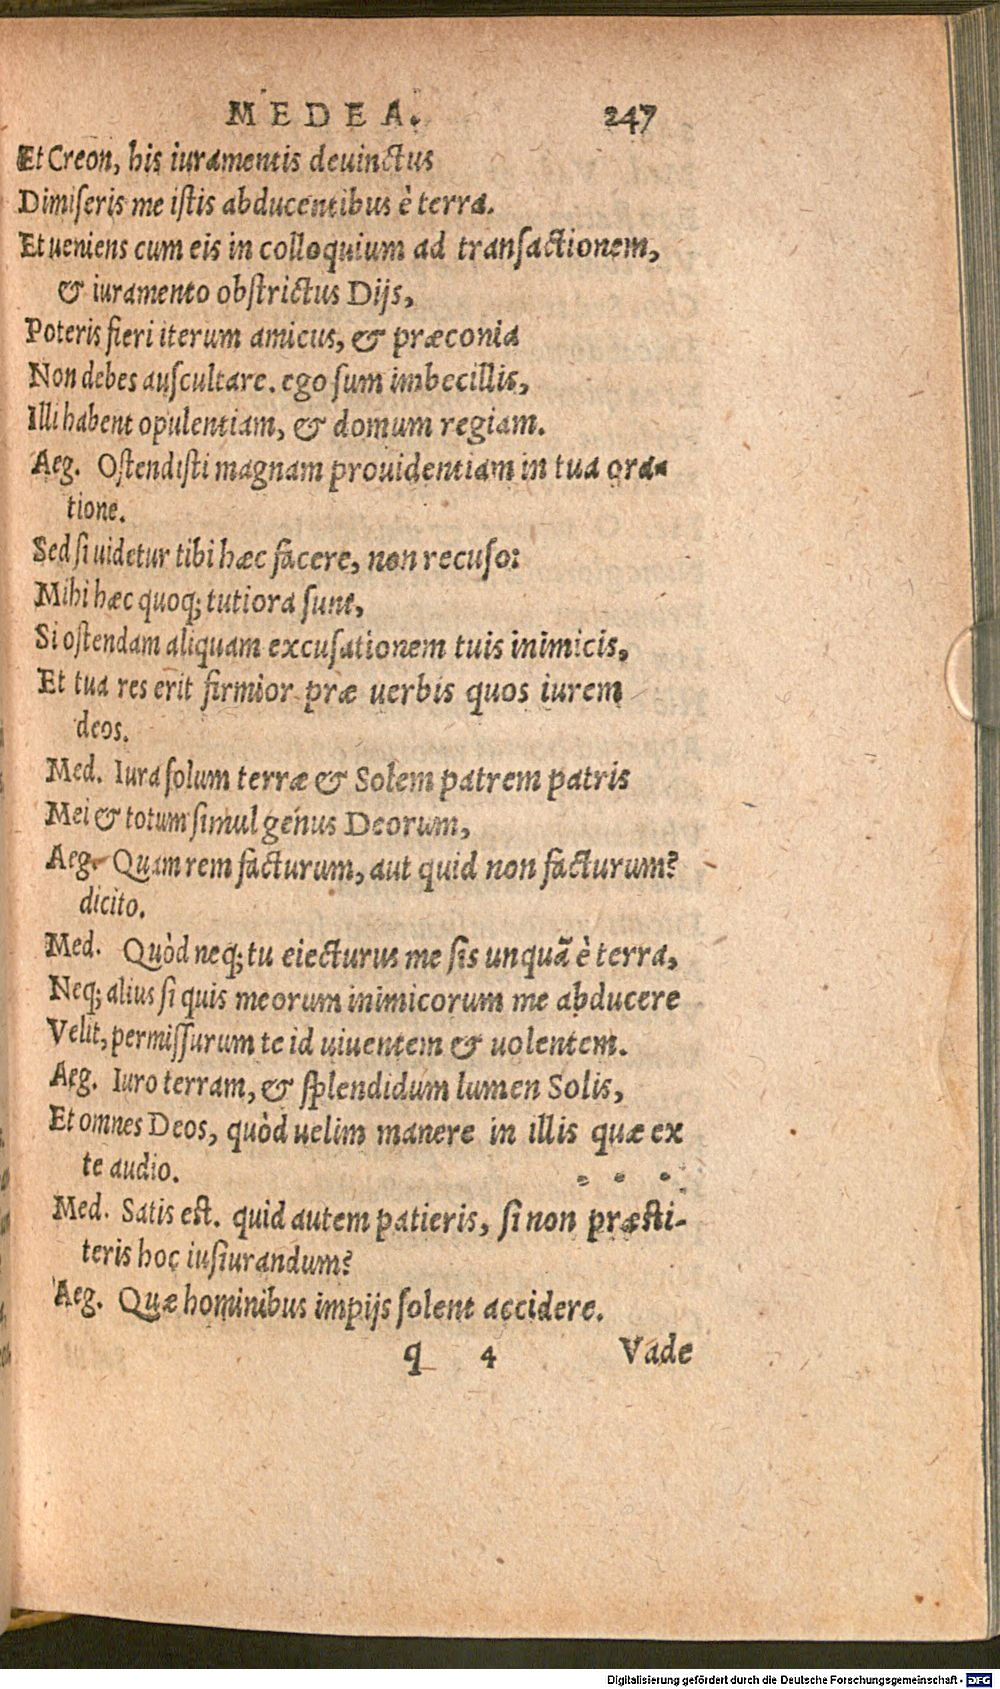 MEDEA. 247
Et Creon, his iuramentis deuinctus
Dimiseris me istis abducentibus è terra.
Et ueniens cum eis in colloquium ad transactionem,
& iuramento obstrictus Dijs,
Poteris fieri iterum amicus, & præconia
Non debes auscultare. ego sum imbecillis,
Illi habent opulentiam, & domum regiam.
Aeg. Ostendisti magnam prouidentiam in tua ora-
tione.
Sed si uidetur tibi hæc facere, non recuso:
Mihi hæc quoq; tutiora sunt,
Si ostendam aliquam excusationem tuis inimicis,
Et tua res erit firmior præ uerbis quos iurem
deos.
Med. Iura solum terræ & Solem patrem patris
Mei & totum simul genus Deorum,
Aeg. Quam rem facturum, aut quid non facturum?
dicito.
Med. Quòd neq; tu eiecturus me sis unquã è terra,
Neq; alius si quis meorum inimicorum me abducere
Velit, permissurum te id uiuentem & uolentem.
Aeg. Iuro terram, & splendidum lumen Solis,
Et omnes Deos, quòd uelim manere in illis quæ ex
te audio.
Med. Satis est. quid autem patieris, si non præsti-
teris hoc iusiurandum?
Aeg. Quæ hominibus impijs solent accidere.
q 4 Vade
Digitalisierung gefördert durch die Deutsche Forschungsgemeinschaft - DFG